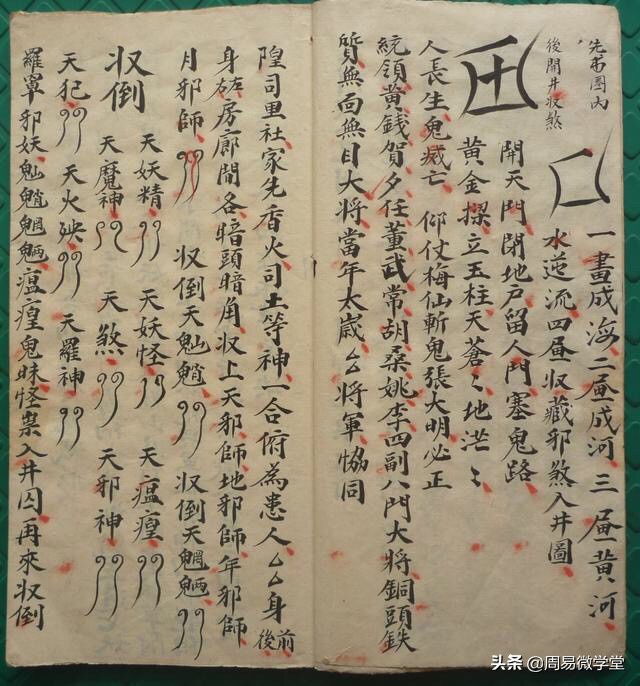 先圈內
後開井收煞
一畫成海二昼成河三昼黃河
水逆流四昼収藏邪煞入井圖
開天門閉地戶留人門塞鬼路
黃金立玉柱天蒼〻地茫〻
人長生鬼滅亡 仰仗梅仙斬鬼張大明必正
統領黃錢賀夕任董武常胡桑姚李四副八門大將銅頭鉄
質無面無目大將當年太歲厶厶將軍恊同
隍司里社家先香火司土等神一合俯為患人厶厶身前後
身房廊間各暗頭暗角収上天邪師地邪師年邪師
月邪師 収倒天魈 収倒天魍魎
収倒 天妖精 天妖怪 天瘟㾮
天魔神 天煞 天邪神
天犯 天火殃 天羅神
羅罩邪妖魈魍魎瘟㾮鬼昧怪祟入井囚再來収倒
头条 @周易微学堂